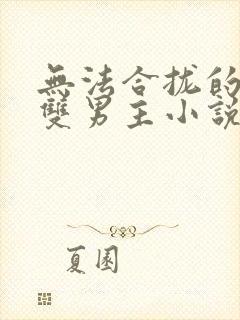 無法合拢的
雙男主小説
夏圂